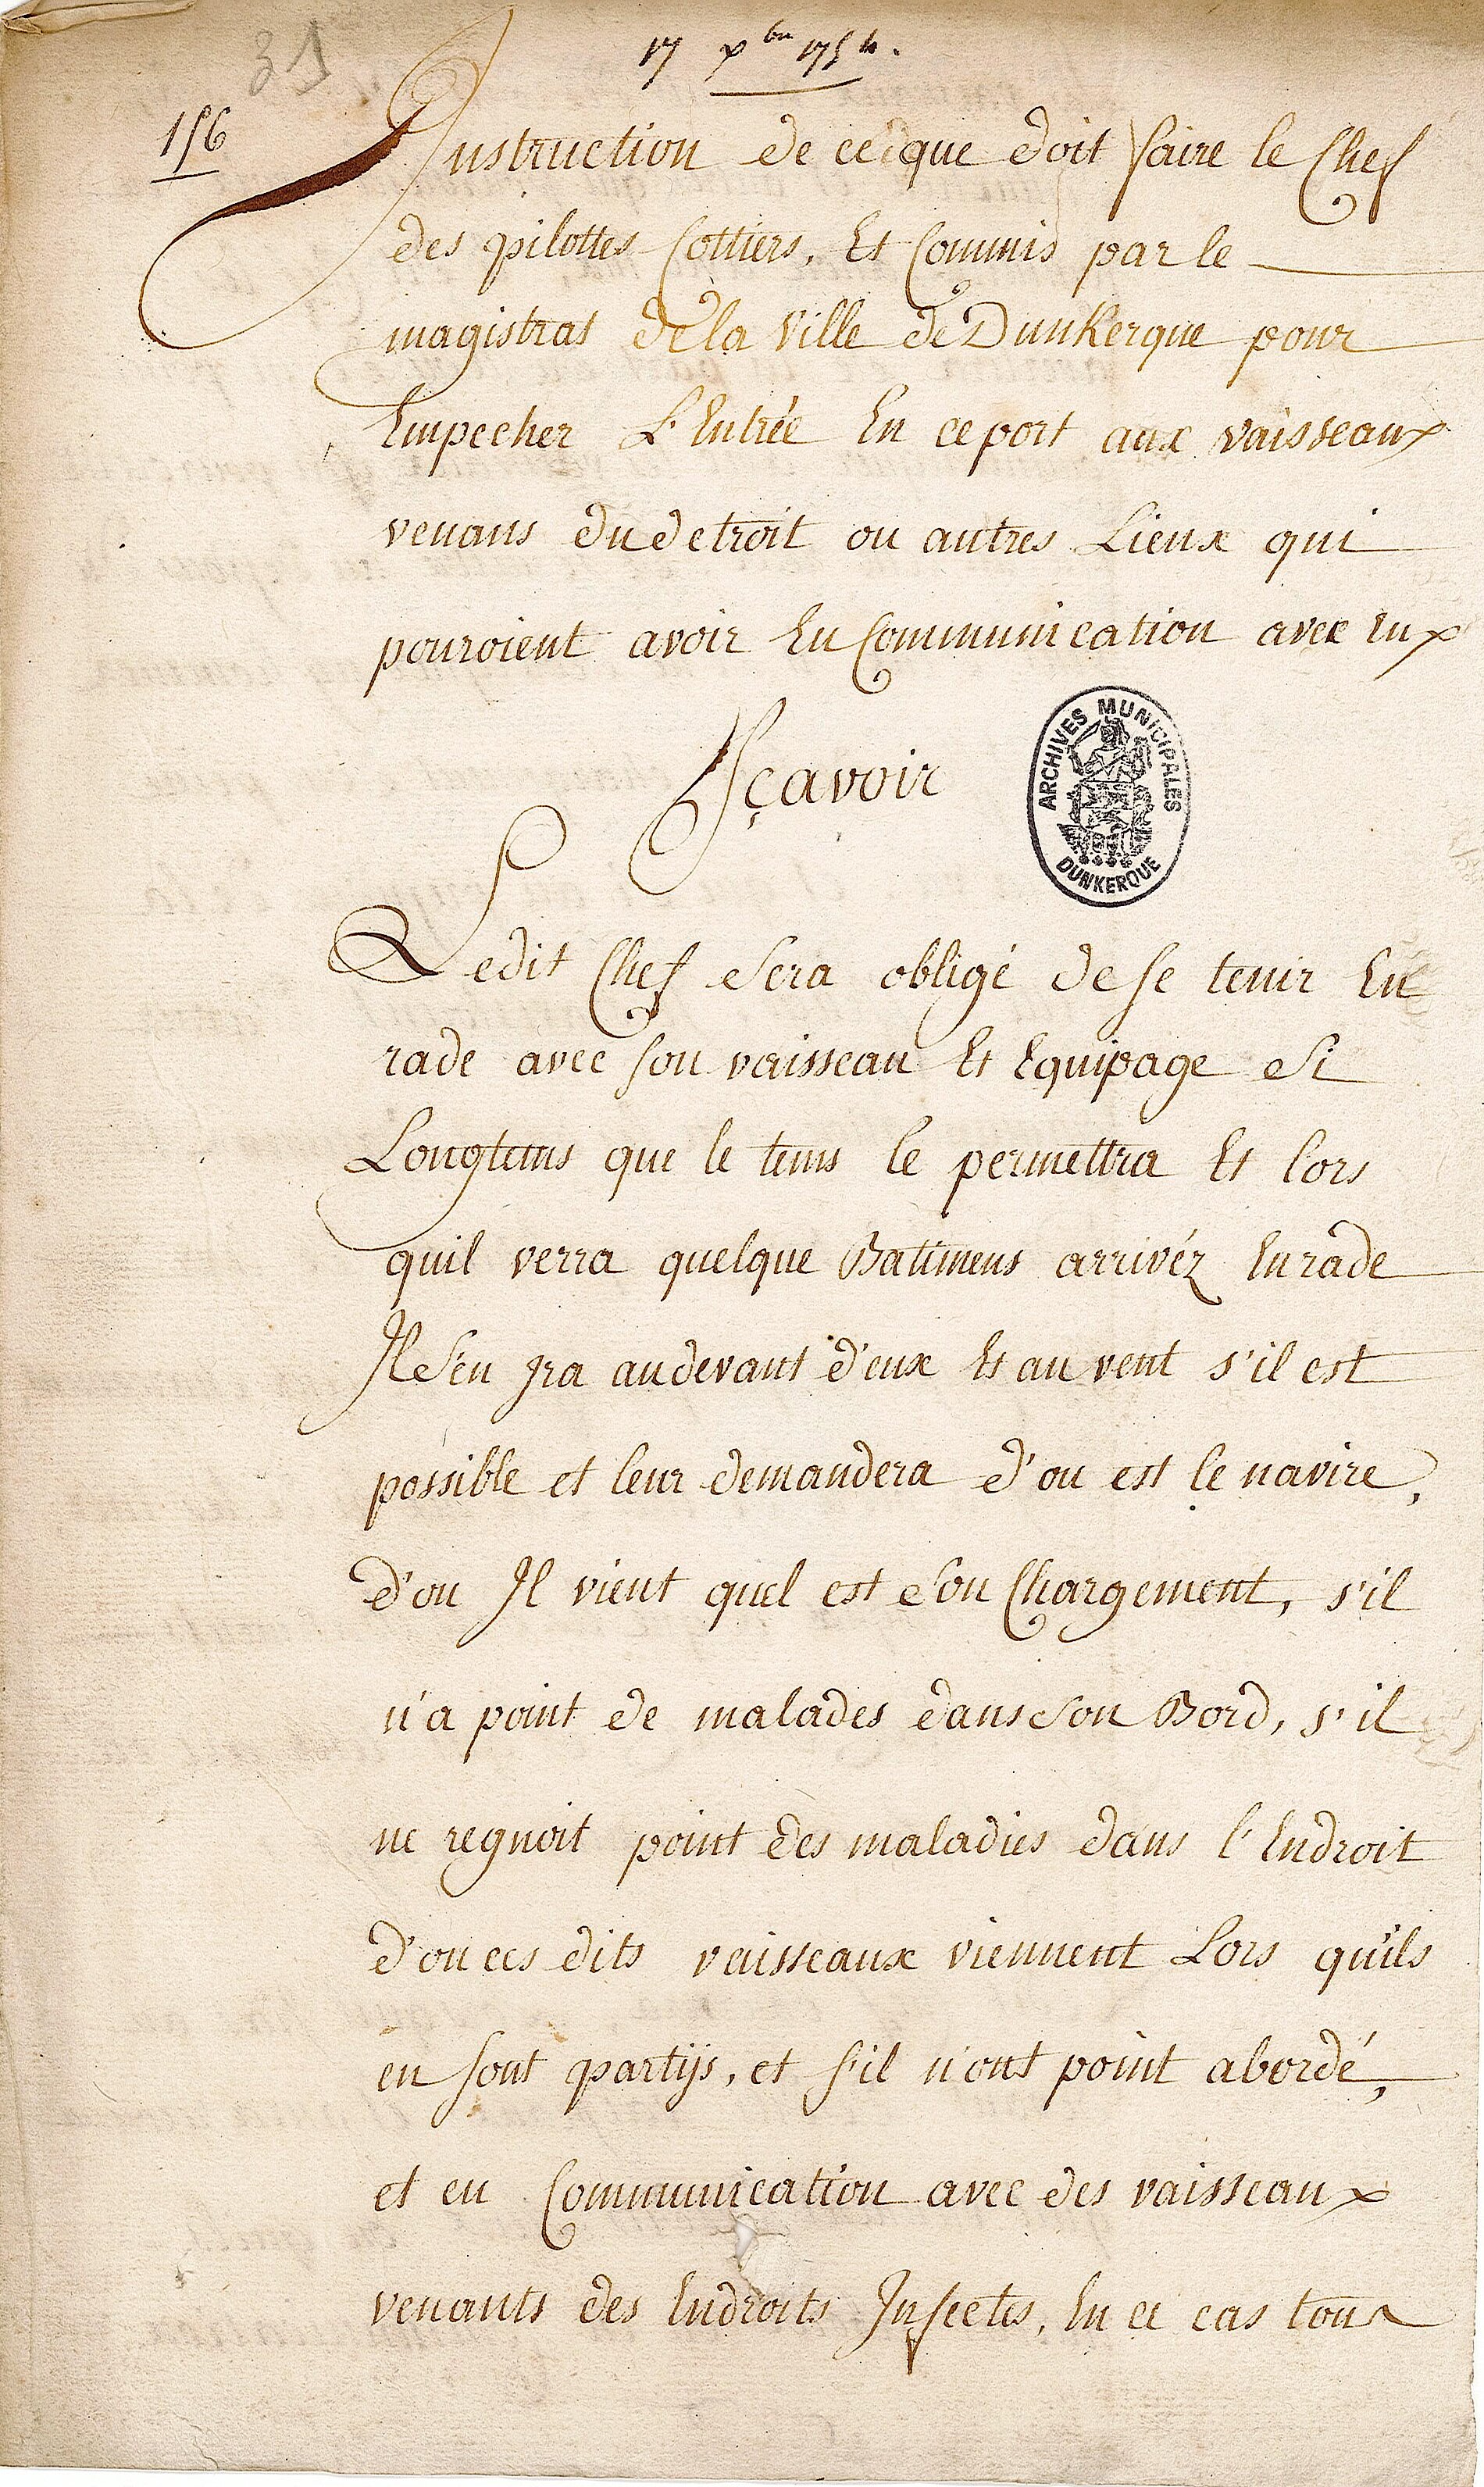 31
17 xbre 1754.
156
Instruction de ce que doit faire le Chef
des pilottes Cottiers, Et Commis par le
magistrat de la Ville de Dunkerque pour
Empecher L'Entrée En ce port aux vaisseaux
venans du detroit ou autres Lieux qui
pouroient avoir Eu Communication avec Eux
Sçavoir
ARCHIVES MUNICIPALES
DUNKERQUE
Ledit Chef Sera obligé de se tenir En
rade avec son vaisseau Et Equipage Si
Longtems que le tems le permettra Et lors
quil verra quelque Batimens arrivéz En rade
Il S'en jra au devant d'eux Et au vent s'il est
possible et leur demandera d'ou est le navire,
d'ou Il vient quel est Son Chargement, s'il
n'a point de malades dans Son Bord, s'il
ne regnoit point des maladies dans l'Endroit
d'ou ces dits vaisseaux viennent Lors qu'ils
en sont partijs, et s'il n'ont point abordé,
et eu Communication avec des vaisseaux
venants des Endroits Infectés, En ce cas tous